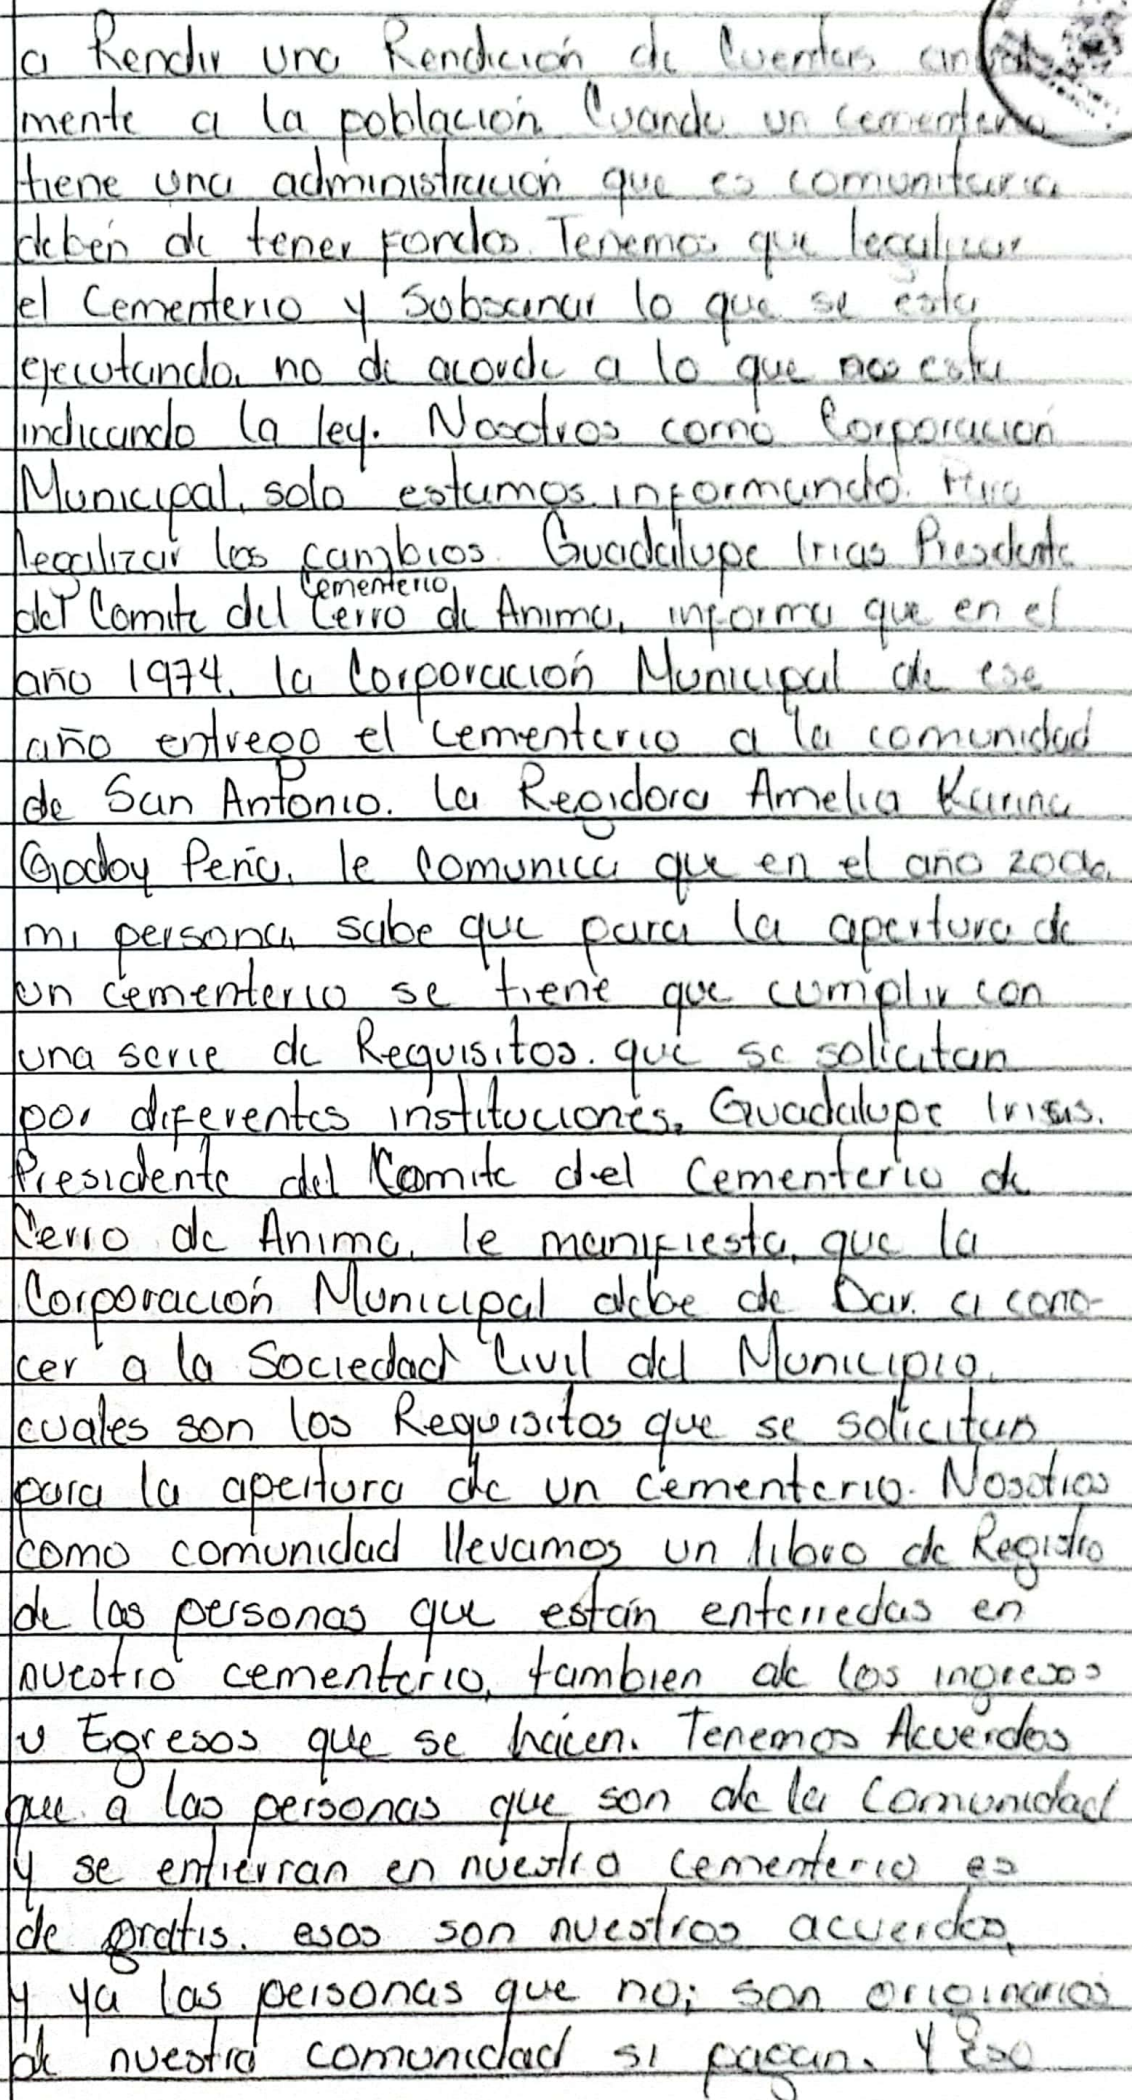 a Rendir una Rendición de Cuentas anual
mente a la población. Cuando un cementerio
tiene una administración que es comunitaria
deben de tener fondos. Tenemos que legalizar
el Cementerio y Subsanar lo que se esta
ejecutando, no de acorde a lo que nos esta
indicando la ley. Nosotros como Corporación
Municipal, solo estamos informando. Para
legalizar los cambios. Guadalupe Irias Presidente
del Comite del Cementerio Cerro de Anima, informa que en el
año 1974, la Corporación Municipal de ese
año entrego el cementerio a la comunidad
de San Antonio. La Regidora Amelia Karina
Godoy Peña, le comunica que en el año 2006,
mi persona, sabe que para la apertura de
un cementerio se tiene que cumplir con
una serie de Requisitos. que se solicitan
por diferentes instituciones. Guadalupe Irias.
Presidente del Comite del Cementerio de
Cerro de Anima, le manifiesta, que la
Corporación Municipal debe de Dar. a cono-
cer a la Sociedad Civil del Municipio,
cuales son los Requisitos que se solicitan
para la apertura de un cementerio. Nosotros
como comunidad llevamos un libro de Registro
de las personas que están enterredas en
nuestro cementerio, tambien de los ingresos
y Egresos que se hacen. Tenemos Acuerdos
que a las personas que son de la Comunidad
y se entierran en nuestro cementerio es
de gratis. esos son nuestros acuerdos,
y ya las personas que no; son originarios
de nuestra comunidad si pagan. Y Eso